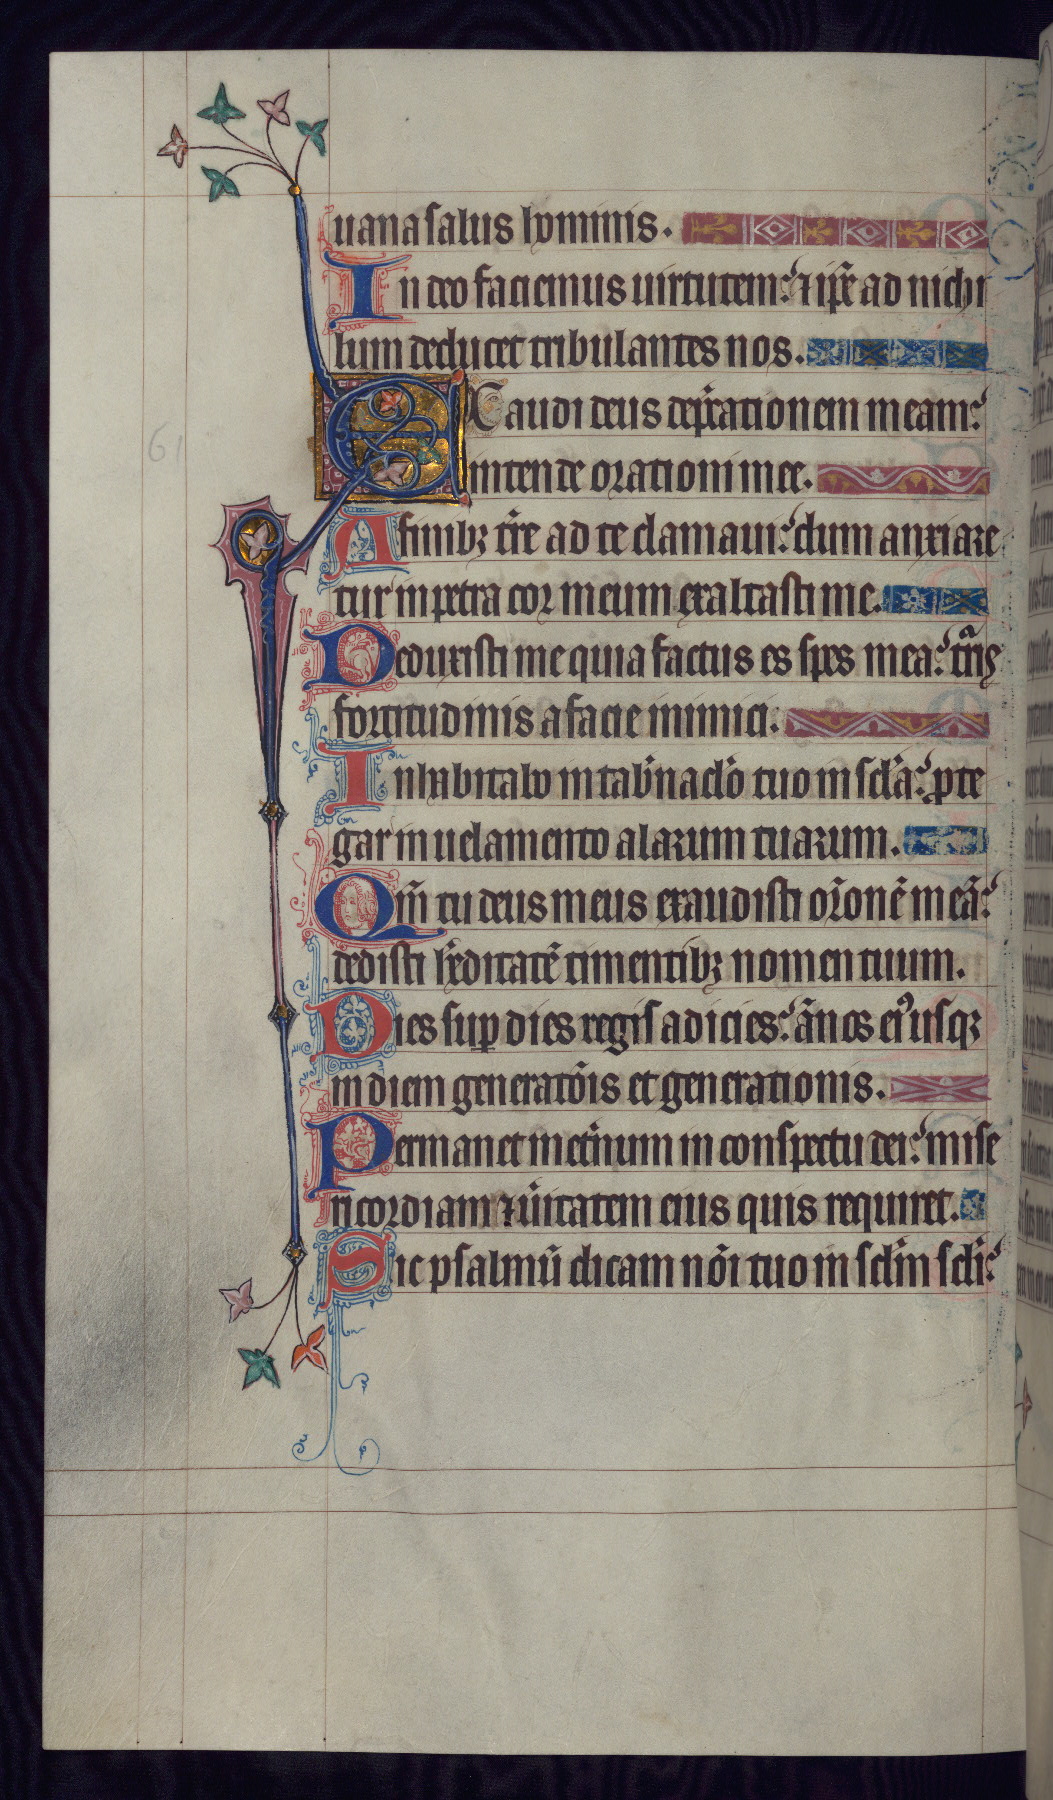 uana salus hominis.
In deo faciemus uirtutem: ⁊ ip̄e ad nichi
lum deducet tribulantes nos.
EXaudi deus dep̄cationem meam:
intende orationi mee.
A finibꝫ t̄re ad te clamaui: dum anxiare
tur in petra cor meum exaltasti me.
Deduxisti me quia factus es spes mea: turris
fortitudinis a facie inimici.
Inhabitabo in tab̄naclo tuo in scl̄a: prote
gar in uelamento alarum tuarum.
Qm̄ tu deus meus exaudisti or̄onē meā:
dedisti h̄editatē timentibꝫ nomen tuum.
Dies suꝑ dies regis adicies: ānos eiꝰ usqꝫ
in diem generatōis et generationis.
Permanet in et̄num in conspectu dei: mise
ricordiam ⁊ ūitatem eius quis requiret.
Sic psalmū dicam nōi tuo in scl̄m scl̄i:
61